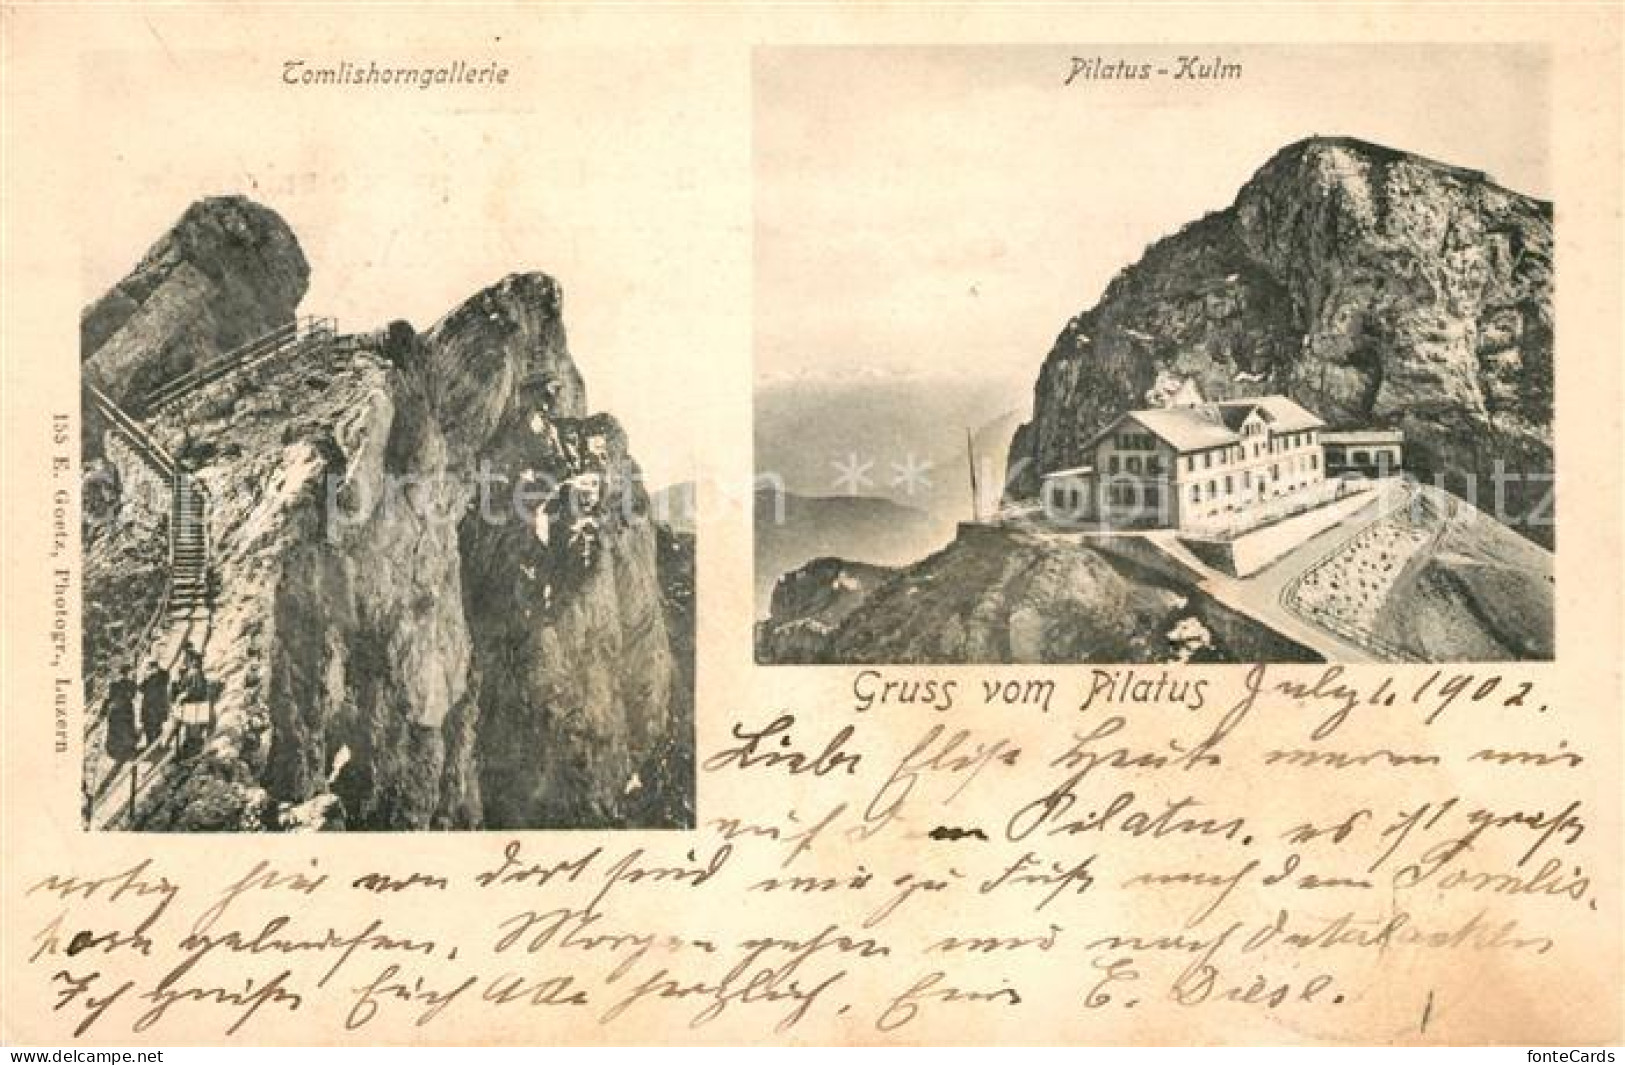 Tomlishorngallerie
Pilatus-Kulm
155 E. Goetz, Photogr., Luzern
protection ** Kopierschutz
Gruss vom Pilatus July 1. 1902.
Liebe Elise Heute waren wir
auf dem Pilatus. es ist groß
artig hier von dort sind wir zu Fuß nach dem Tomlis
horn gelaufen. Morgen gehen wir nach
Ich grüße Euch Alle herzlich. Eure E. Diesl.
www.delcampe.net
fonteCards